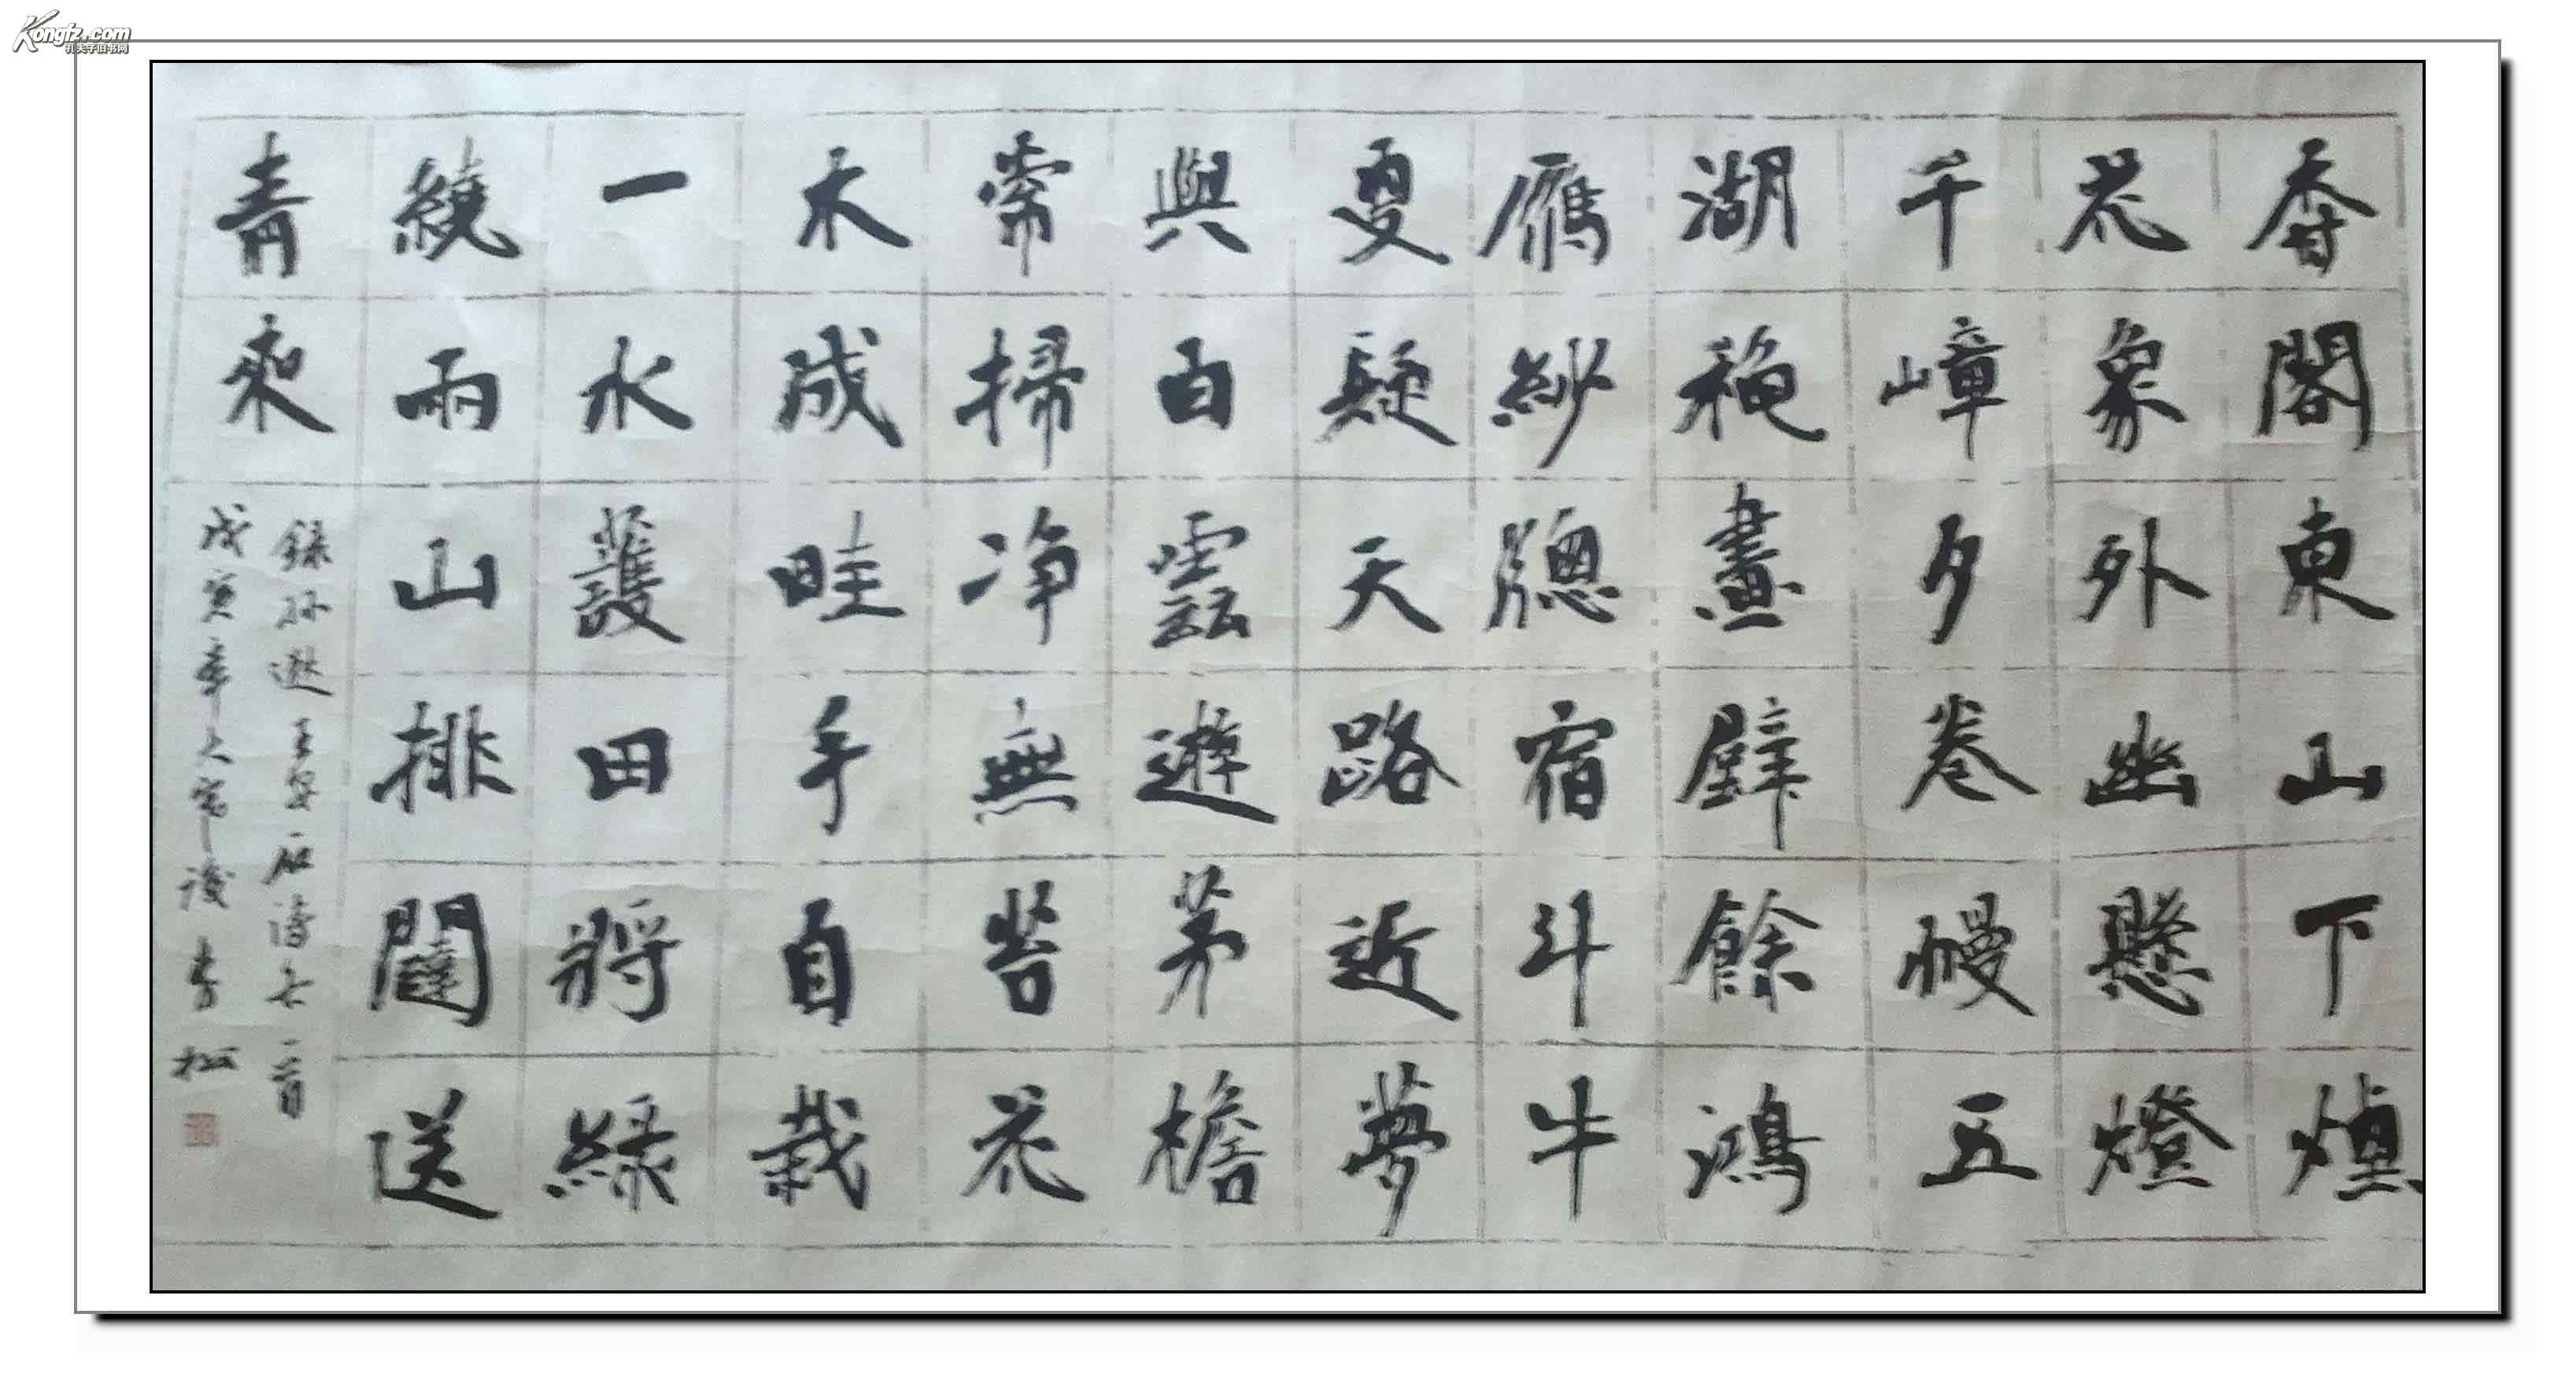 Kongfz.com
孔夫子旧书网
香閣東山下煙
花象外幽懸燈
千嶂夕卷幔五
湖穐畫壁餘鴻
雁紗牕宿斗牛
更疑天路近夢
與白雲遊茅檐
常掃净無苔花
木成畦手自栽
一水護田將綠
繞兩山排闥送
青來
錄孫逖王安石詩各一首
戊寅年大寒後 松